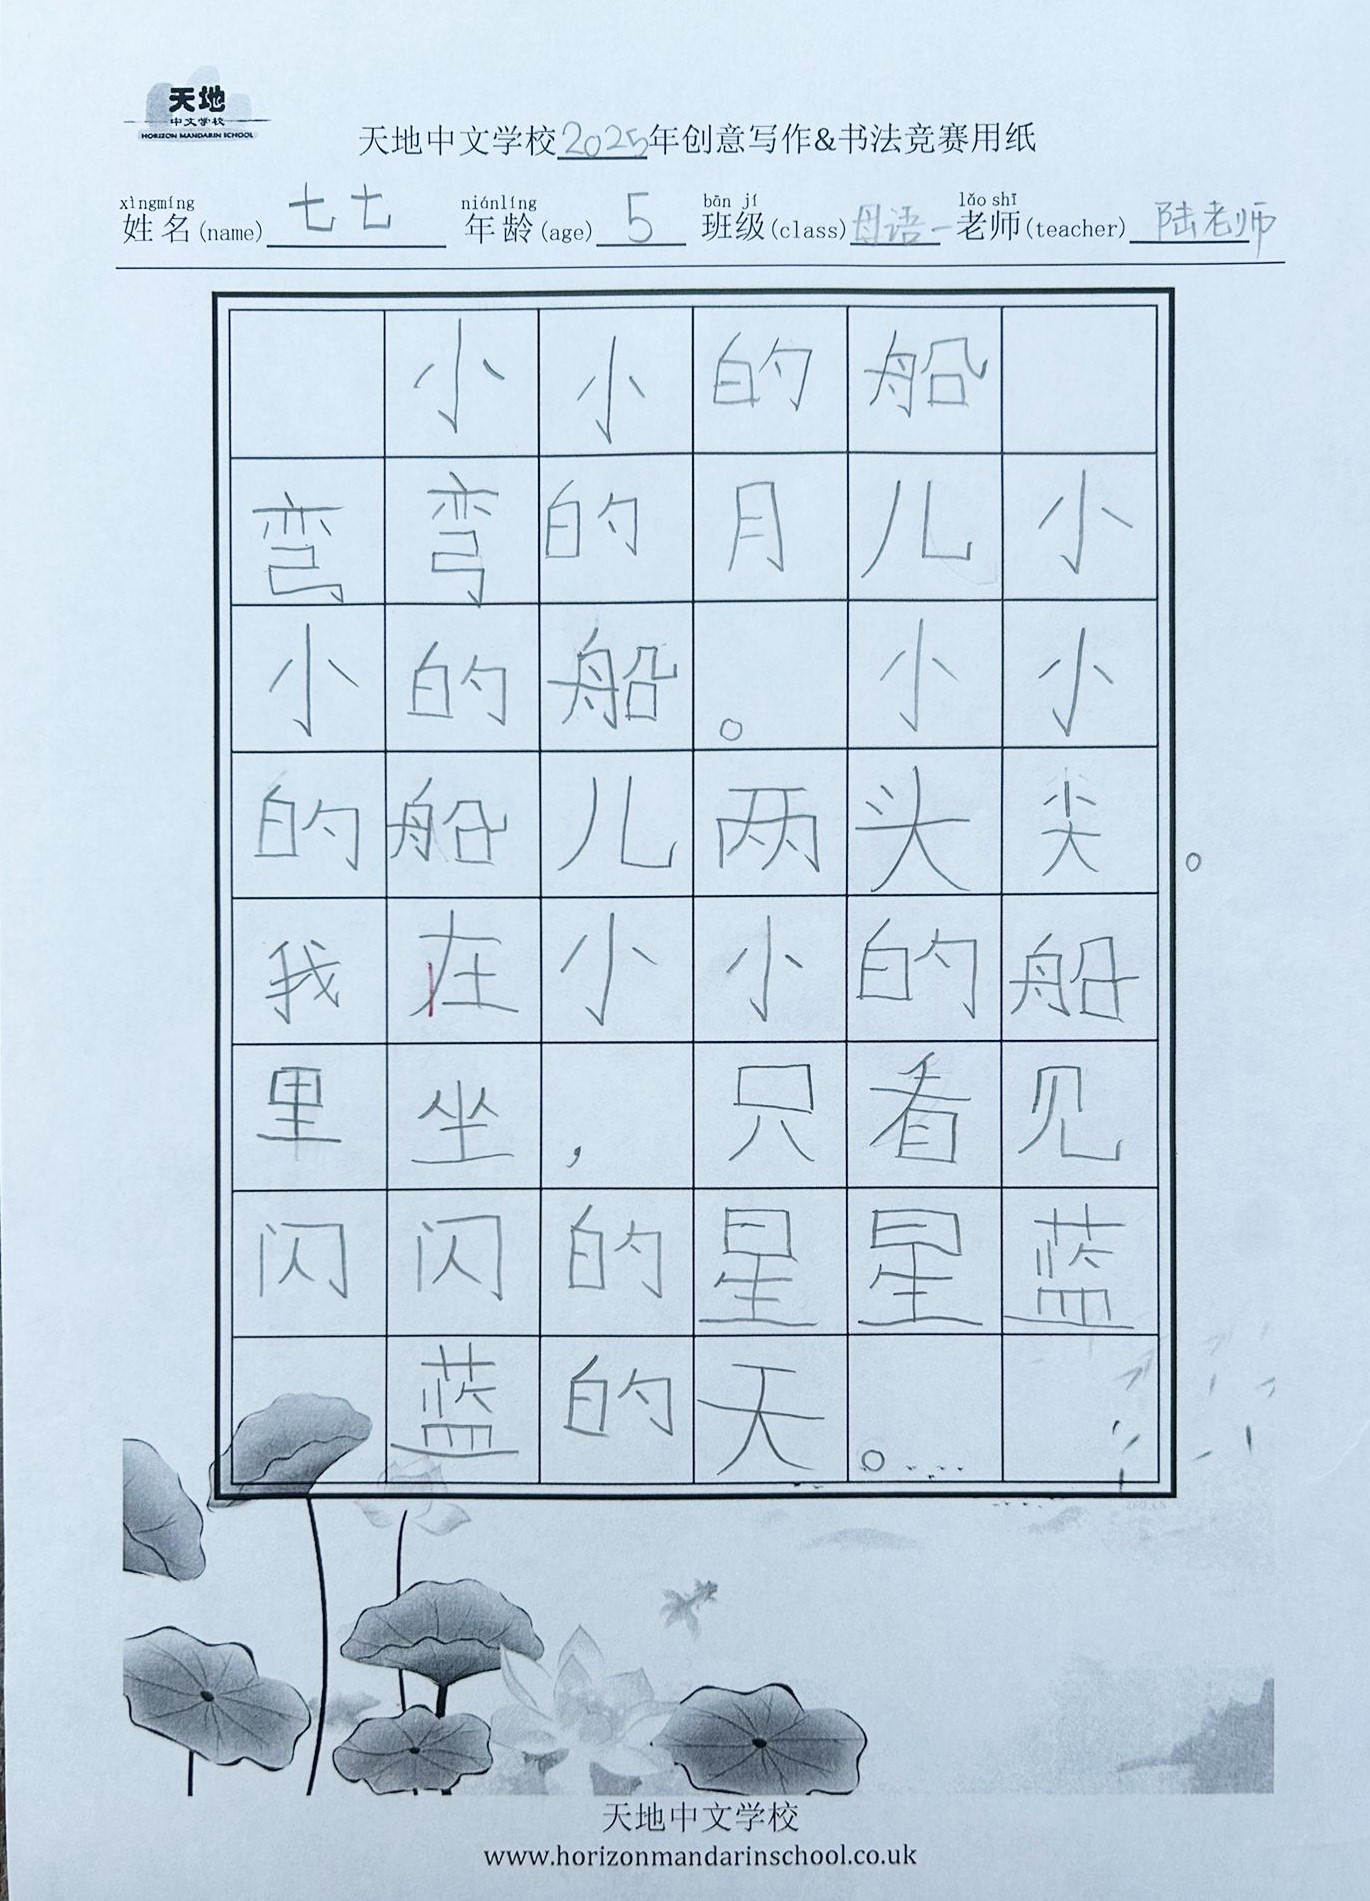 天地
中文学校
HORIZON MANDARIN SCHOOL
天地中文学校2025年创意写作&书法竞赛用纸
xìngmíng niánlíng bān jí lǎo shī
姓名(name) 七七 年龄(age) 5 班级(class) 母语一 老师(teacher) 陆老师
小小的船
弯弯的月儿小
小的船。小小
的船儿两头尖。
我在小小的船
里坐,只看见
闪闪的星星蓝
蓝的天。
天地中文学校
www.horizonmandarinschool.co.uk